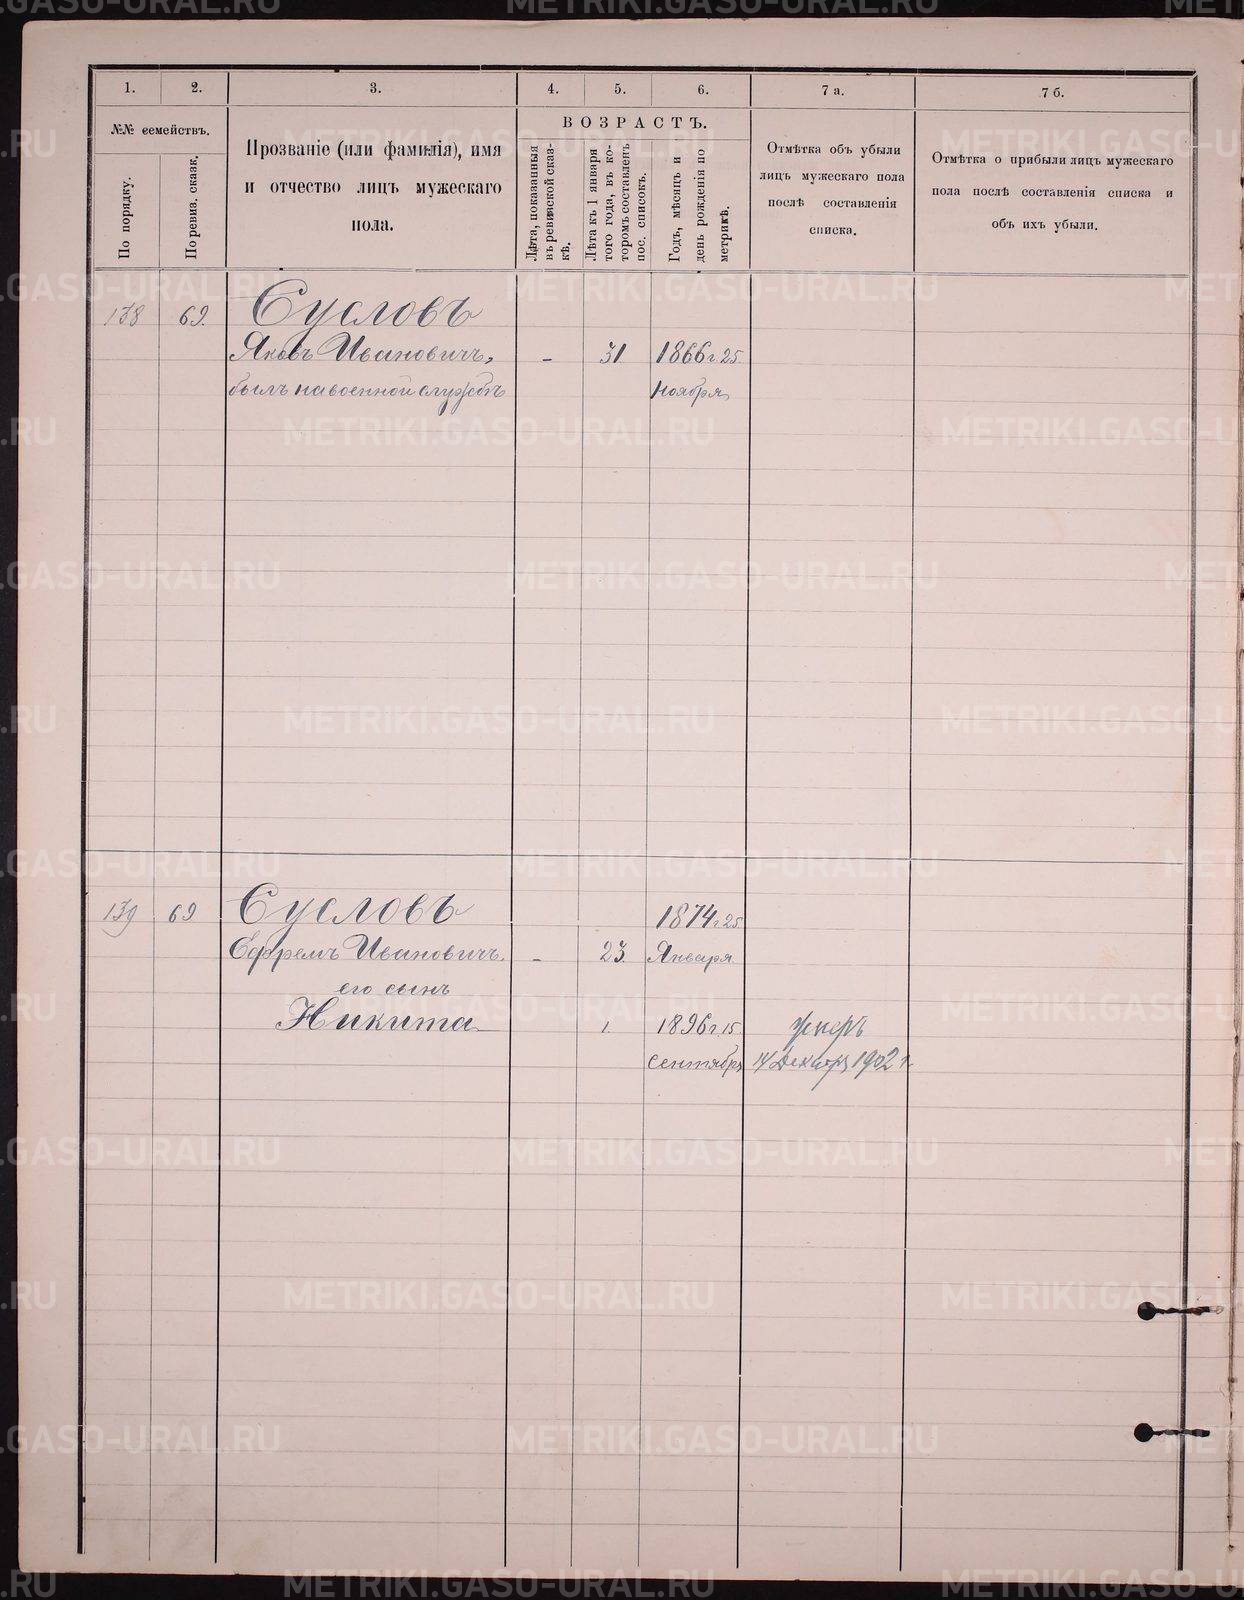 1.
2.
3.
4.
5.
6.
7 а.
7 б.
№№ семействъ.
По порядку.
По ревиз. сказк.
Прозваніе (или фамилія), имя
и отчество лицъ мужескаго
пола.
ВОЗРАСТЪ.
Лѣта, показанныя
въ ревизской сказ-
кѣ.
Лѣта къ 1 января
того года, въ ко-
торомъ составленъ
пос. списокъ.
Годъ, мѣсяцъ и
день рожденія по
метрикѣ.
Отмѣтка объ убыли
лицъ мужескаго пола
послѣ составленія
списка.
Отмѣтка о прибыли лицъ мужескаго
пола послѣ составленія списка и
объ ихъ убыли.
138 69. Сусловъ
Яковъ Ивановичъ, - 31 1866 г. 25
былъ на военной службѣ Ноября
139 69 Сусловъ 1874 г. 25
Ефремъ Ивановичъ. - 23. Января
его сынъ
Никита 1. 1896 г. 15. умеръ
Сентября 14 Декабря 1902 г.
METRIKI.GASO-URAL.RU